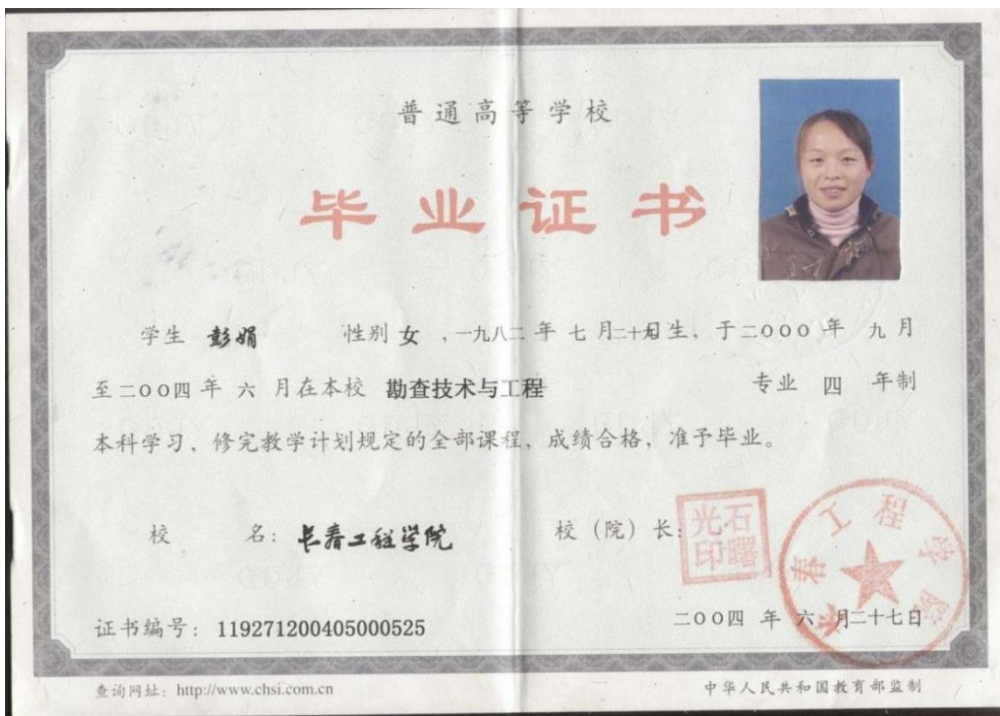 普通高等学校
毕业证书
学生 彭娟 性别 女 ,一九八二 年 七 月二十九日生，于二〇〇〇 年 九 月
至二〇〇四 年 六 月在本校 勘查技术与工程 专业 四 年制
本科学习，修完教学计划规定的全部课程，成绩合格，准予毕业。
校 名：长春工程学院 校（院）长：
石曙光印
长春工程学院
证书编号：119271200405000525
二〇〇四 年 六 月二十七日
查询网址：http://www.chsi.com.cn
中华人民共和国教育部监制